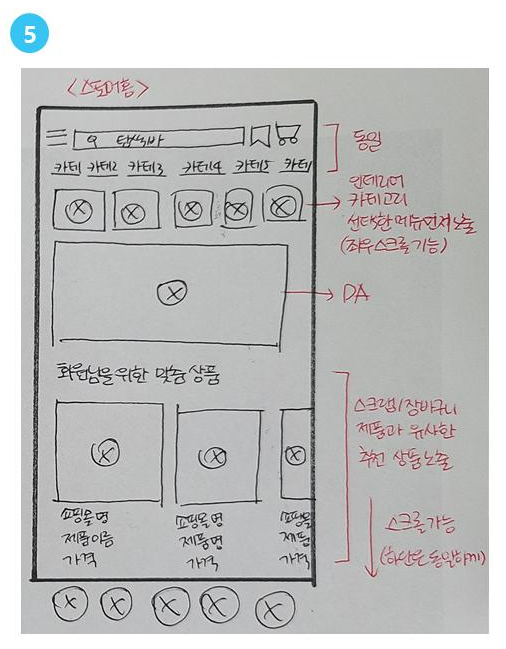 5
<스토어홈>
탐색바
동일
카테1 카테2 카테3 카테4 카테5 카테
인테리어
카테고리
선택한 메뉴먼저노출
(좌우스크롤 가능)
DA
회원님을 위한 맞춤 상품
스크랩/장바구니
제품과 유사한
추천 상품노출
쇼핑몰명 쇼핑몰명 쇼핑몰
제품이름 제품명 제품
가격 가격 가격
스크롤가능